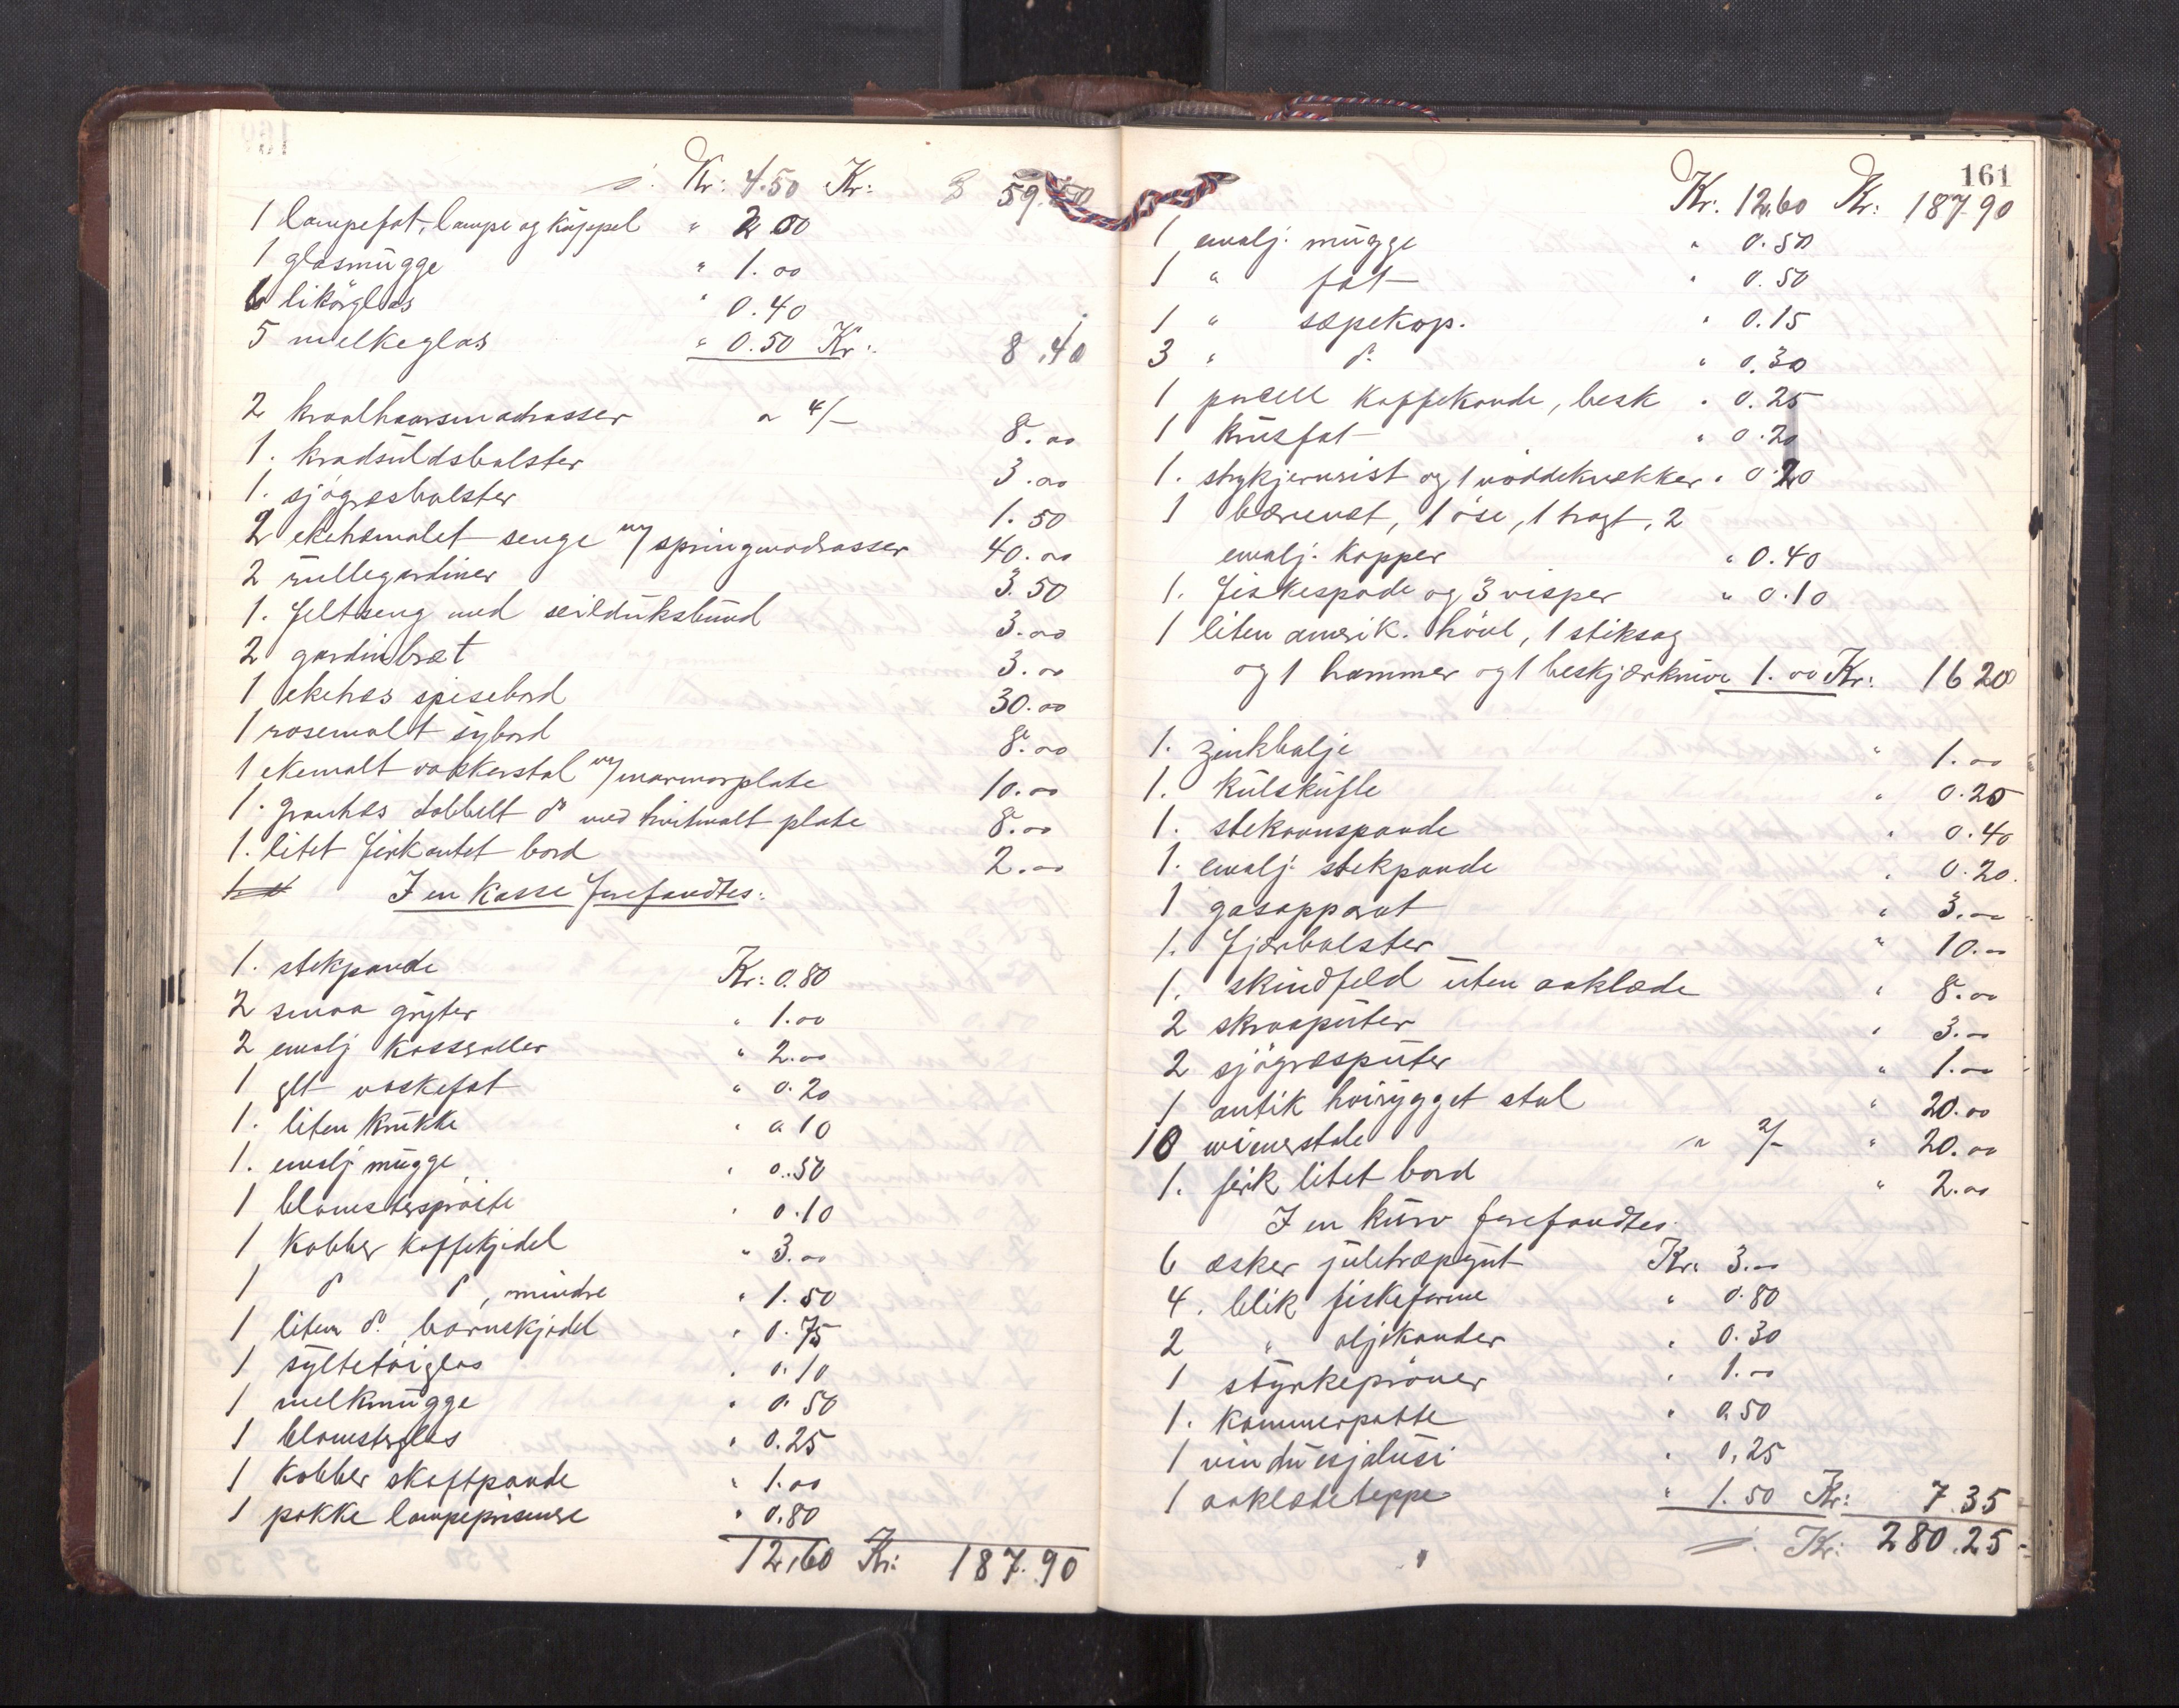 Kr: 4.50 Kr: 59.50
1 lampefat, lampe og kuppel " 2.00
1 glasmugge " 1.00
6 likörglas " 0.40
5 melkeglas " 0.50 Kr: 8.40
2 krøllhaarsmadrasser a 4/- 8.00
1. kradsuldsbolster 3.00
1. sjögræsbolster 1.50
2 eketræmalet senge m/springmadrasser 40.00
2 rullegardiner 3.50
1. feltseng med seilduksbund 3.00
2 gardinbræt 3.00
1 eketræs spisebord 30.00
1 rosemalt sybord 8.00
1 ekemalt vaskerstol m/marmorplate 10.00
1. grantræs dobbelt do med hvitmalt plate 8.00
1. litet firkantet bord 2.00
I en kasse forefandtes:
1. stekpande Kr: 0.80
2 smaa gryter " 1.00
2 emalj kasseroller " 2.00
1 glt vaskefat " 0.20
1. liten krukke " 0.10
1. emalj mugge " 0.50
1 blomstersprøite " 0.10
1 kobber kaffekjedel " 3.00
1 do do, mindre " 1.50
1 liten do. barnekjedel " 0.75
1 syltetöiglas " 0.10
1 melkmugge " 0.50
1 blomsterglas " 0.25
1 kobber skaftpande " 1.00
1 pakke lampeprismer " 0.80
12.60 Kr: 187.90
161
Kr. 12.60 Kr: 187.90
1 emalj. mugge " 0.50
1 " fat " 0.50
1 " sæpekop. " 0.15
3 " do. " 0.30
1 porcell kaffekande, besk " 0.25
1 krusfat " 0.20
1. strykjernsrist og 1 nöddeknækker " 0.20
1 1 öse, 1 tragt, 2
emalj. kopper " 0.40
1. fiskespade og 3 visper " 0.10
1 liten amerik. hövl, 1 stiksag
og 1 hammer og 1 beskjærkniv 1.00 Kr: 16 20
1. zinkbalje " 1.00
1. kulskufle " 0.25
1. stekovnspande " 0.40
1. emalj. stekpande " 0.20.
1 gasapparat " 3.00
1. fjærbolster " 10.00
1. skindfeld uten aaklæde " 8.00
2 skraaputer " 3.00
2 sjögræsputer " 1.00
1 antik höirygget stol " 20.00
10 wienerstole a 2/- " 20.00
1. firk litet bord " 2.00
I en kurv forefandtes.
6 æsker juletræpynt Kr: 3.00
4. blik fiskeforme " 0.80
2 " oljekander " 0.30
1 styrkepröver " 1.00
1. kammerpotte " 0.50
1 vinduesjalusi " 0.25
1 aaklædeteppe " 1.50 Kr: 7.35
Kr: 280.25